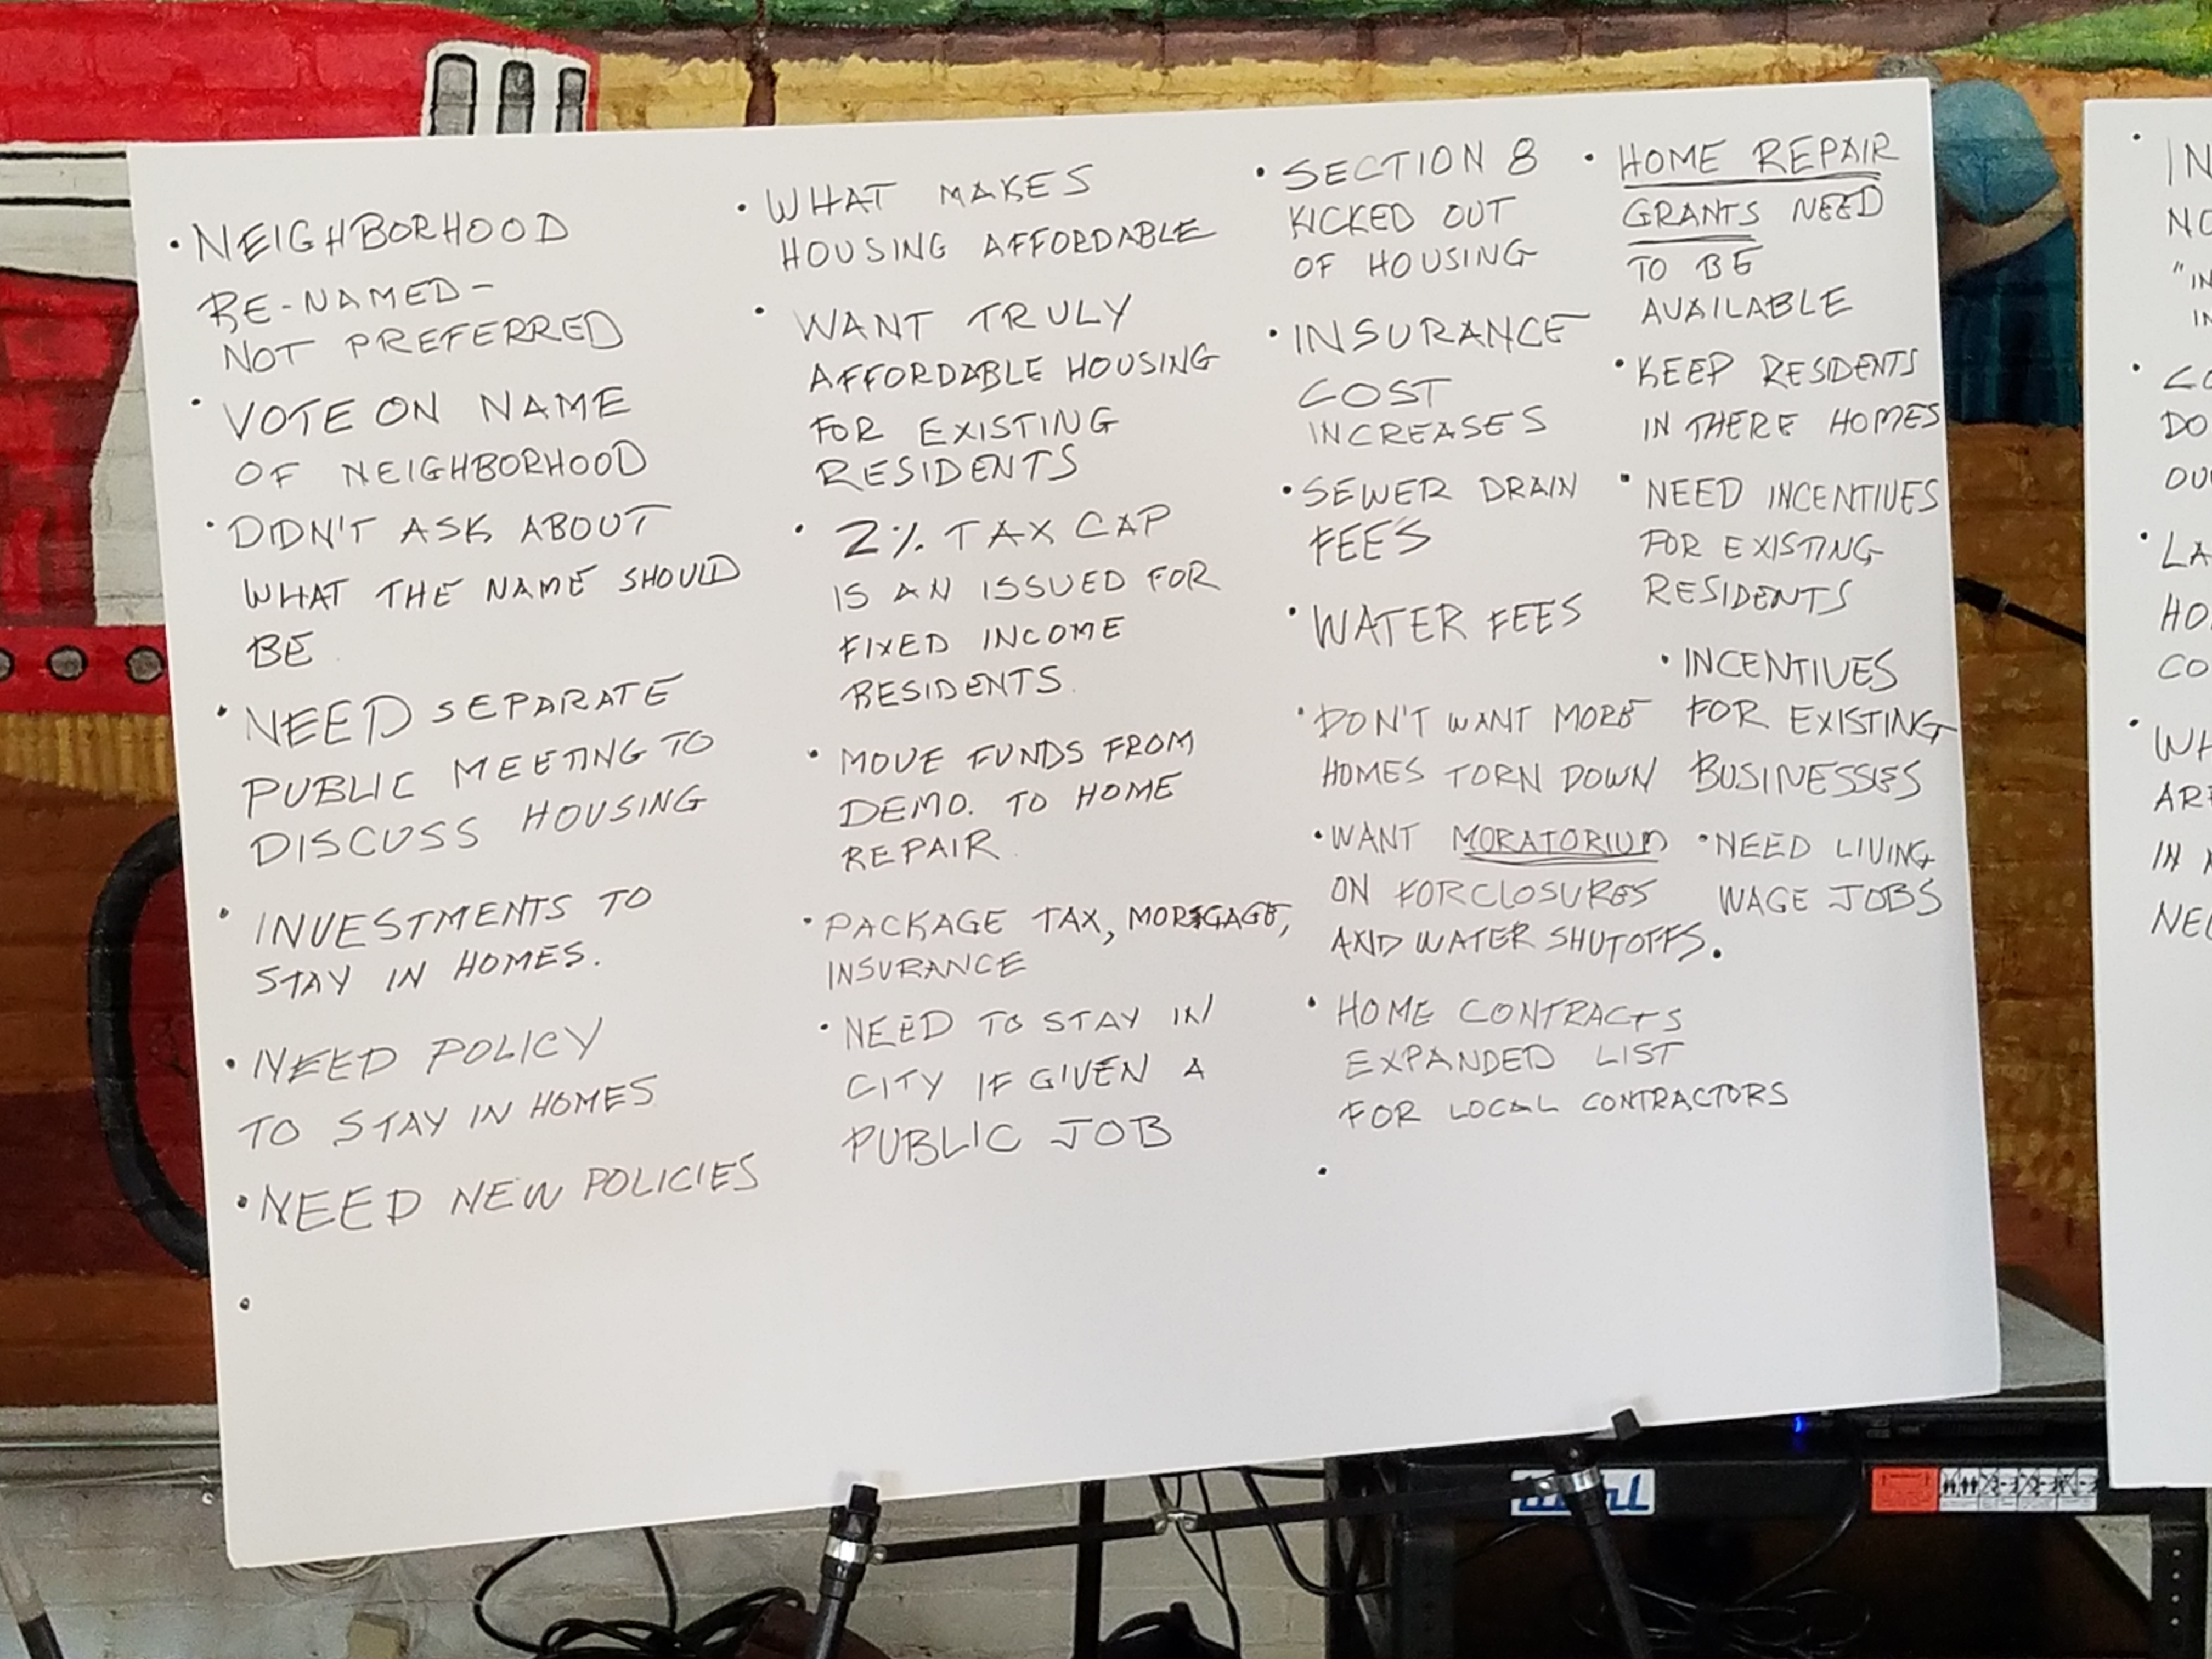 • NEIGHBORHOOD
RE-NAMED -
NOT PREFERRED
• VOTE ON NAME
OF NEIGHBORHOOD
• DIDN'T ASK ABOUT
WHAT THE NAME SHOULD
BE
• NEED SEPARATE
PUBLIC MEETING TO
DISCUSS HOUSING
• INVESTMENTS TO
STAY IN HOMES.
• NEED POLICY
TO STAY IN HOMES
• NEED NEW POLICIES
•
• WHAT MAKES
HOUSING AFFORDABLE
• WANT TRULY
AFFORDABLE HOUSING
FOR EXISTING
RESIDENTS
• 2% TAX CAP
IS AN ISSUED FOR
FIXED INCOME
RESIDENTS.
• MOVE FUNDS FROM
DEMO. TO HOME
REPAIR.
• PACKAGE TAX, MORTGAGE,
INSURANCE
• NEED TO STAY IN
CITY IF GIVEN A
PUBLIC JOB
• SECTION 8
KICKED OUT
OF HOUSING
• INSURANCE
COST
INCREASES
• SEWER DRAIN
FEES
• WATER FEES
• DON'T WANT MORE
HOMES TORN DOWN
• WANT MORATORIUM
ON FORCLOSURES
AND WATER SHUTOFFS.
• HOME CONTRACTS
EXPANDED LIST
FOR LOCAL CONTRACTORS
•
• HOME REPAIR
GRANTS NEED
TO BE
AVAILABLE
• KEEP RESIDENTS
IN THERE HOMES
• NEED INCENTIVES
FOR EXISTING
RESIDENTS
• INCENTIVES
FOR EXISTING
BUSINESSES
• NEED LIVING
WAGE JOBS